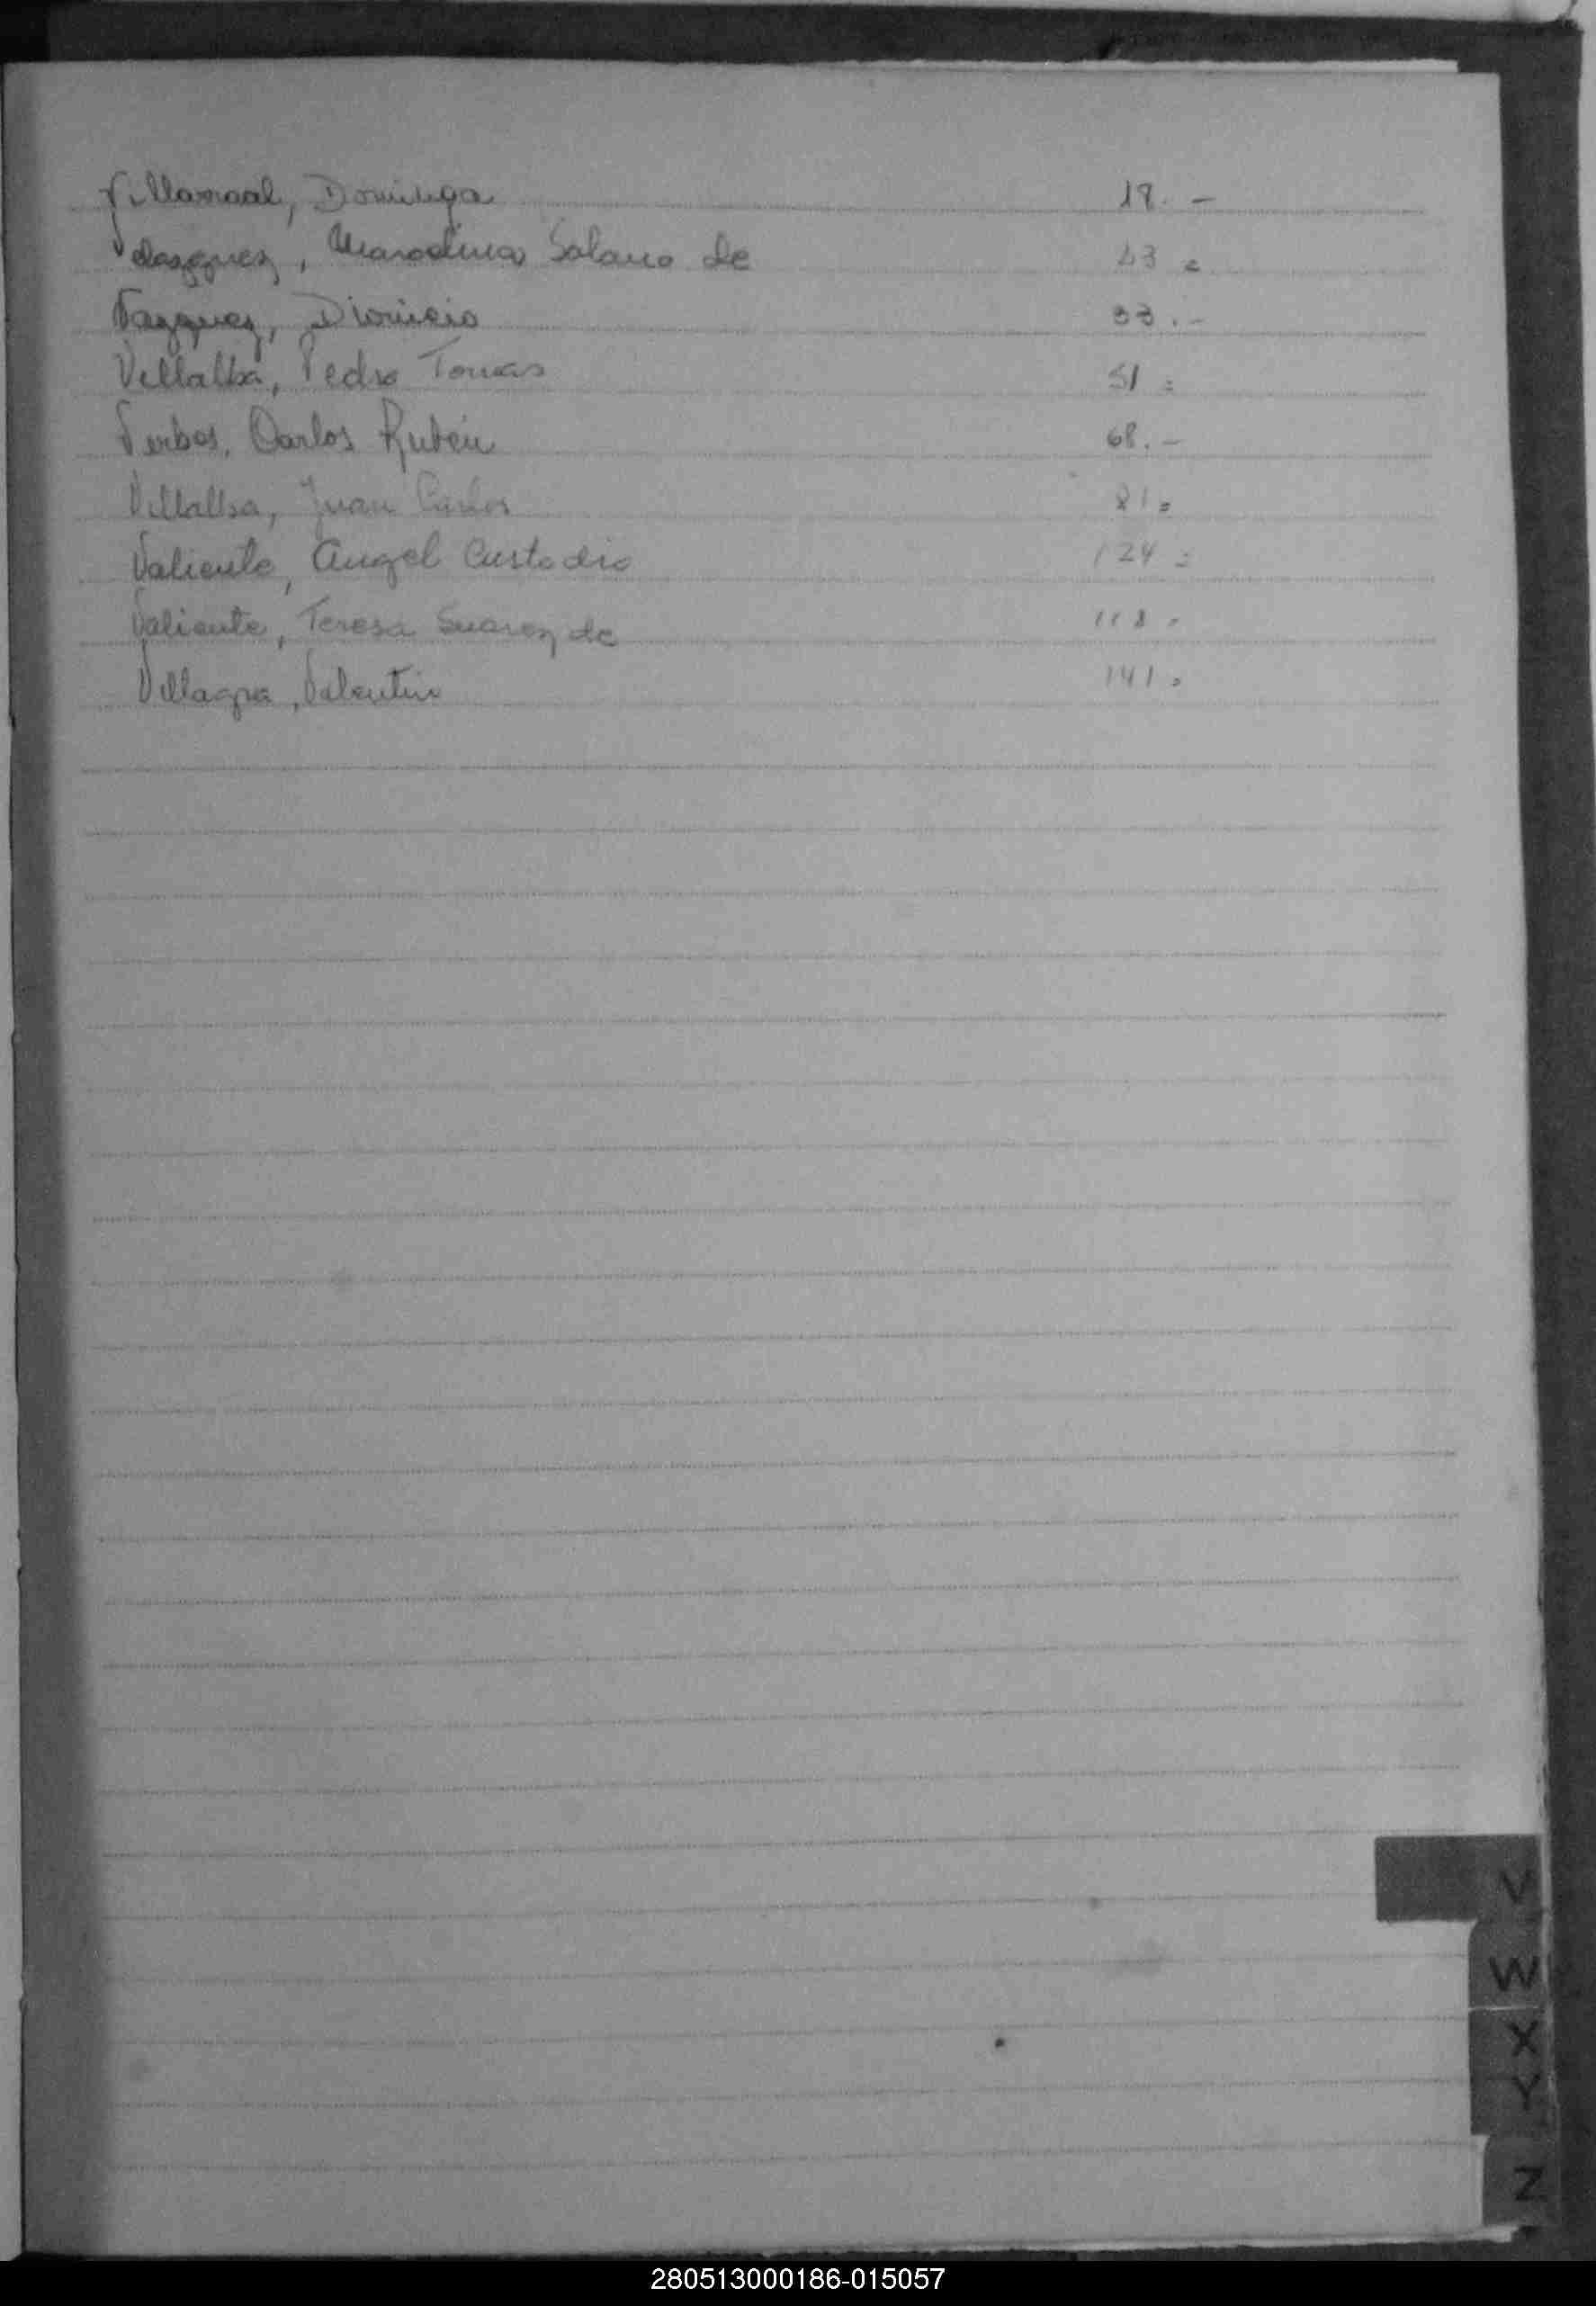 Villarreal, Dominga 19.-
Velasquez, Marcelina Solano de 23 =
Vazquez, Dionicio 33.-
Villalba, Pedro Tomas 51 =
Verbos, Carlos Rubén 68.-
Villalba, Juan Carlos 81 =
Valiente, Angel Custodio 124 =
Valiente, Teresa Suarez de 118 =
Villagra, Valentin 141 =
V
W
X
Y
Z
280513000186-015057